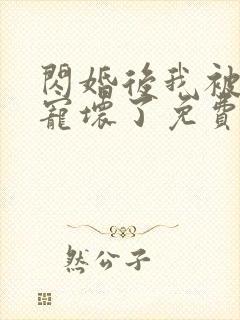 閃婚後我被
寵壞了免費
然公子